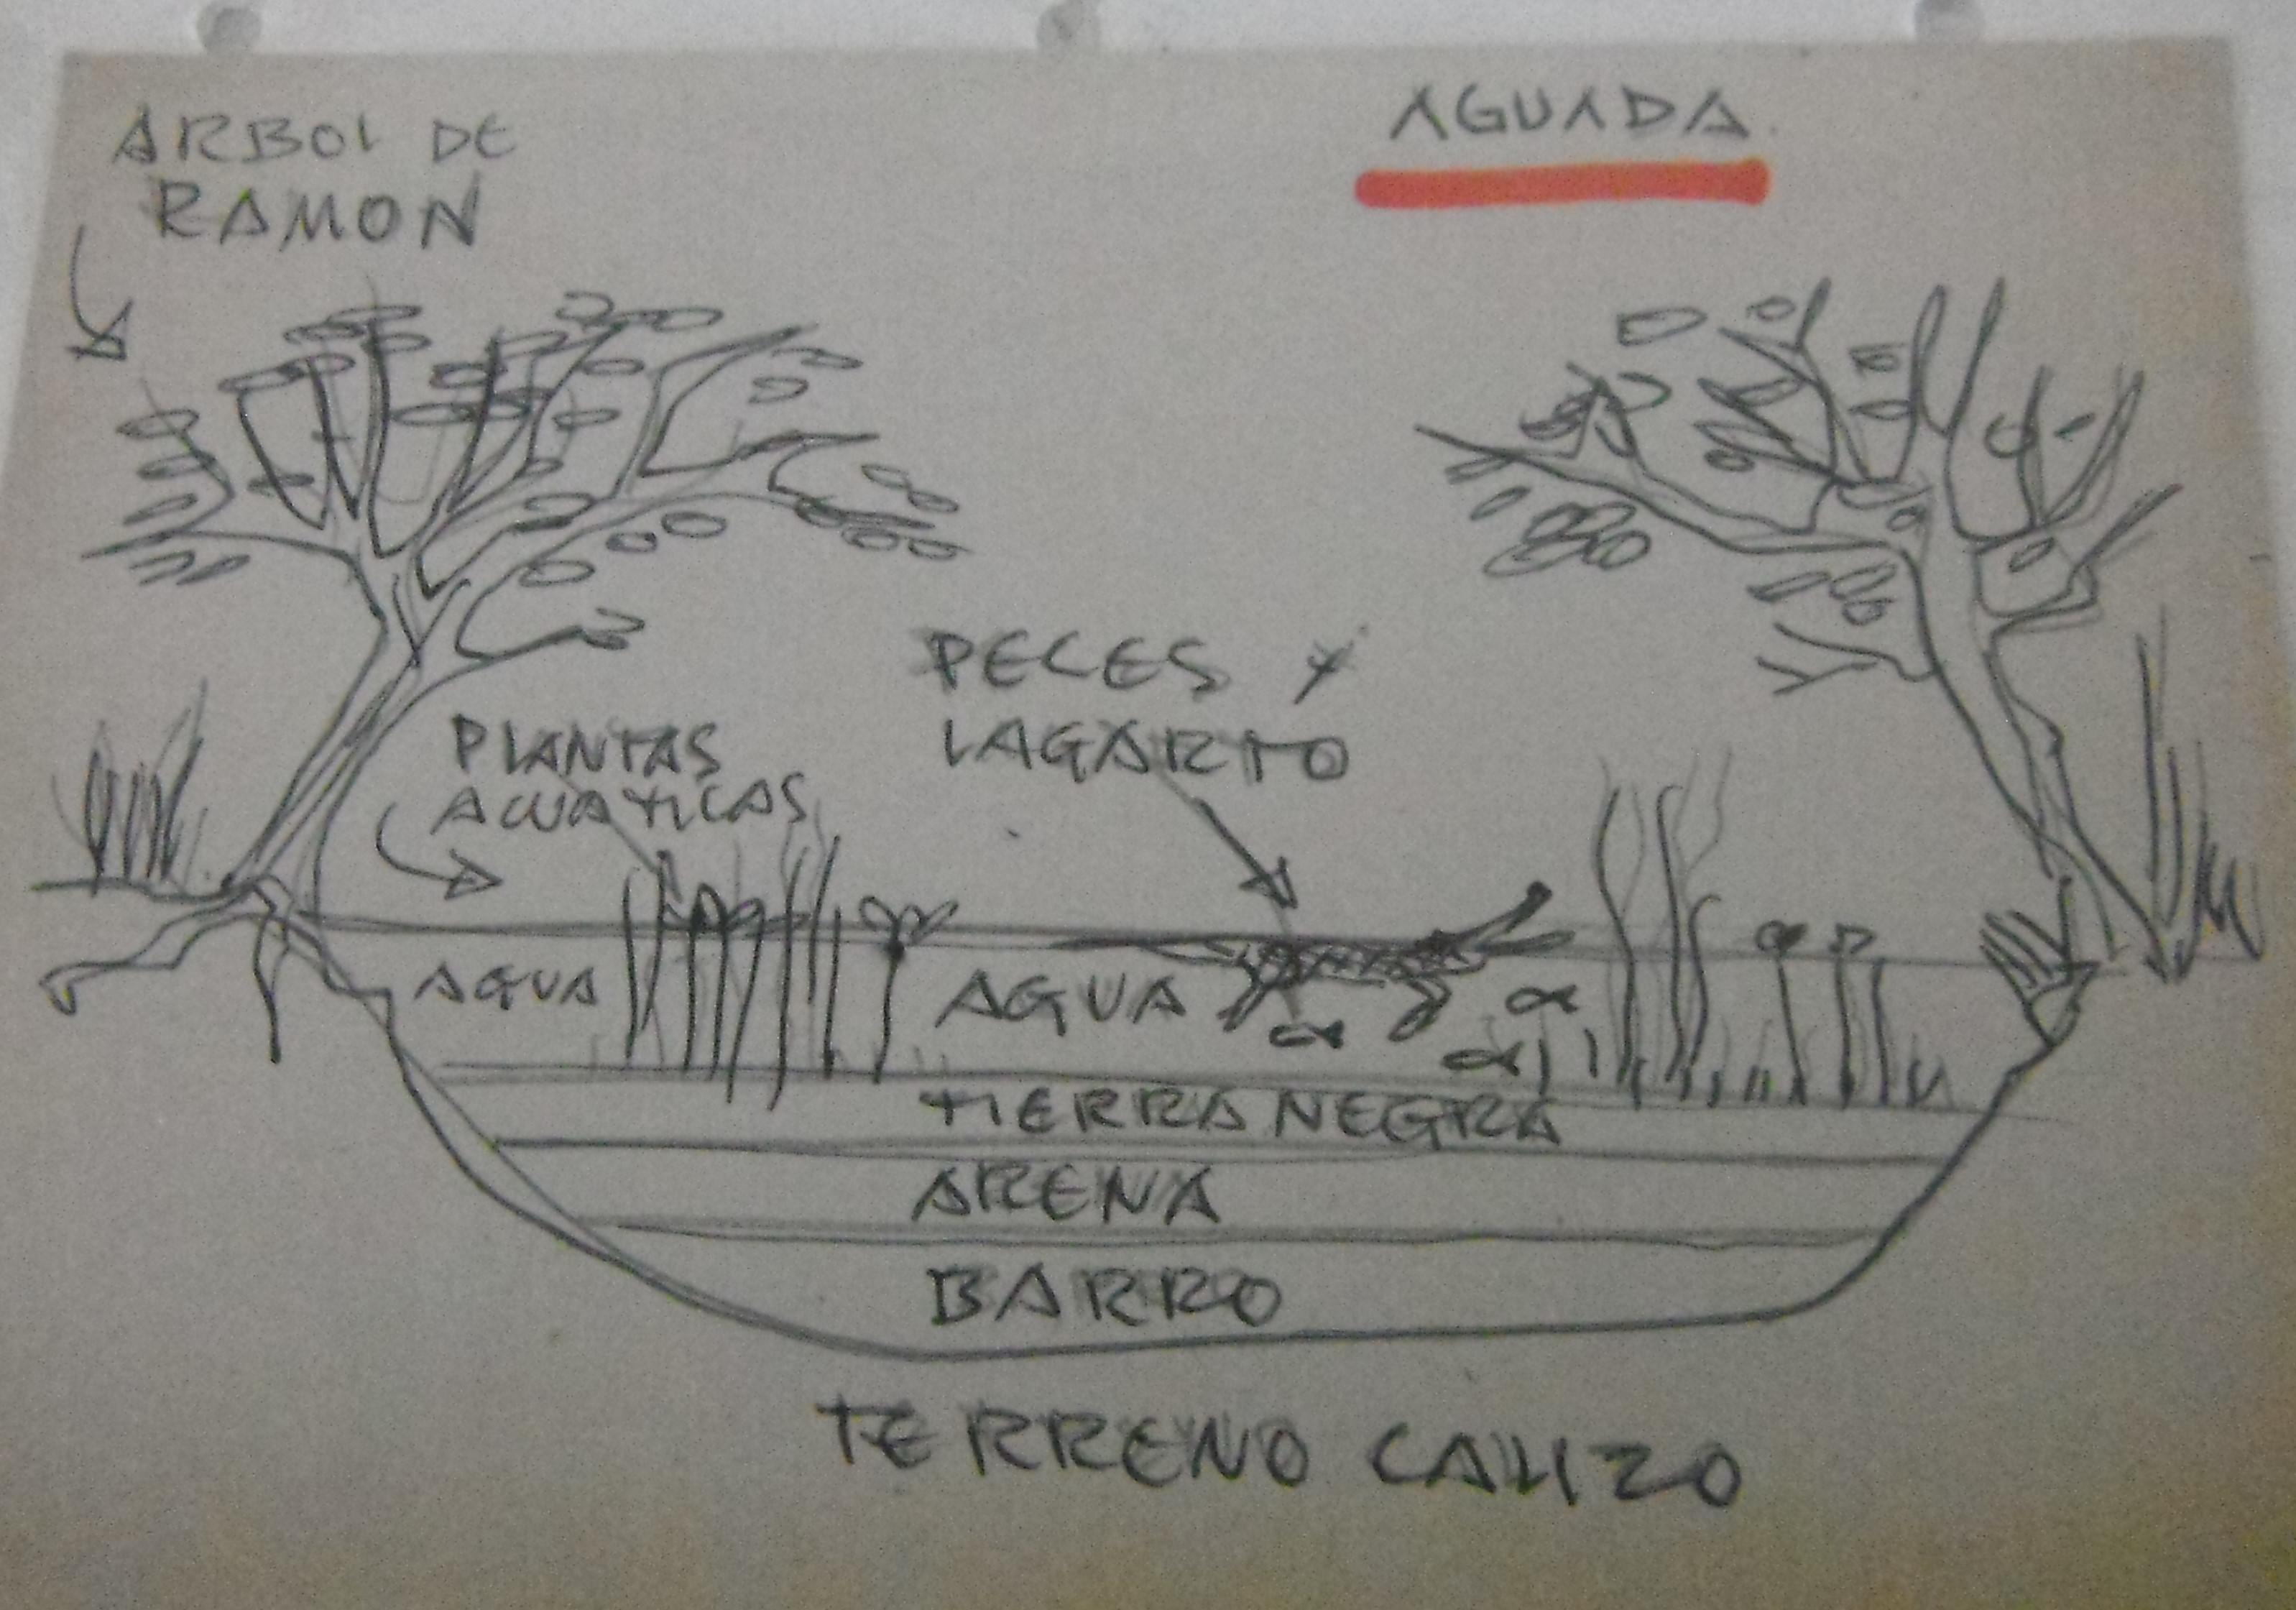 AGUADA
ARBOL DE
RAMON
PECES Y
LAGARTO
PLANTAS
ACUATICAS
AGUA
AGUA
TIERRA NEGRA
ARENA
BARRO
TERRENO CALIZO